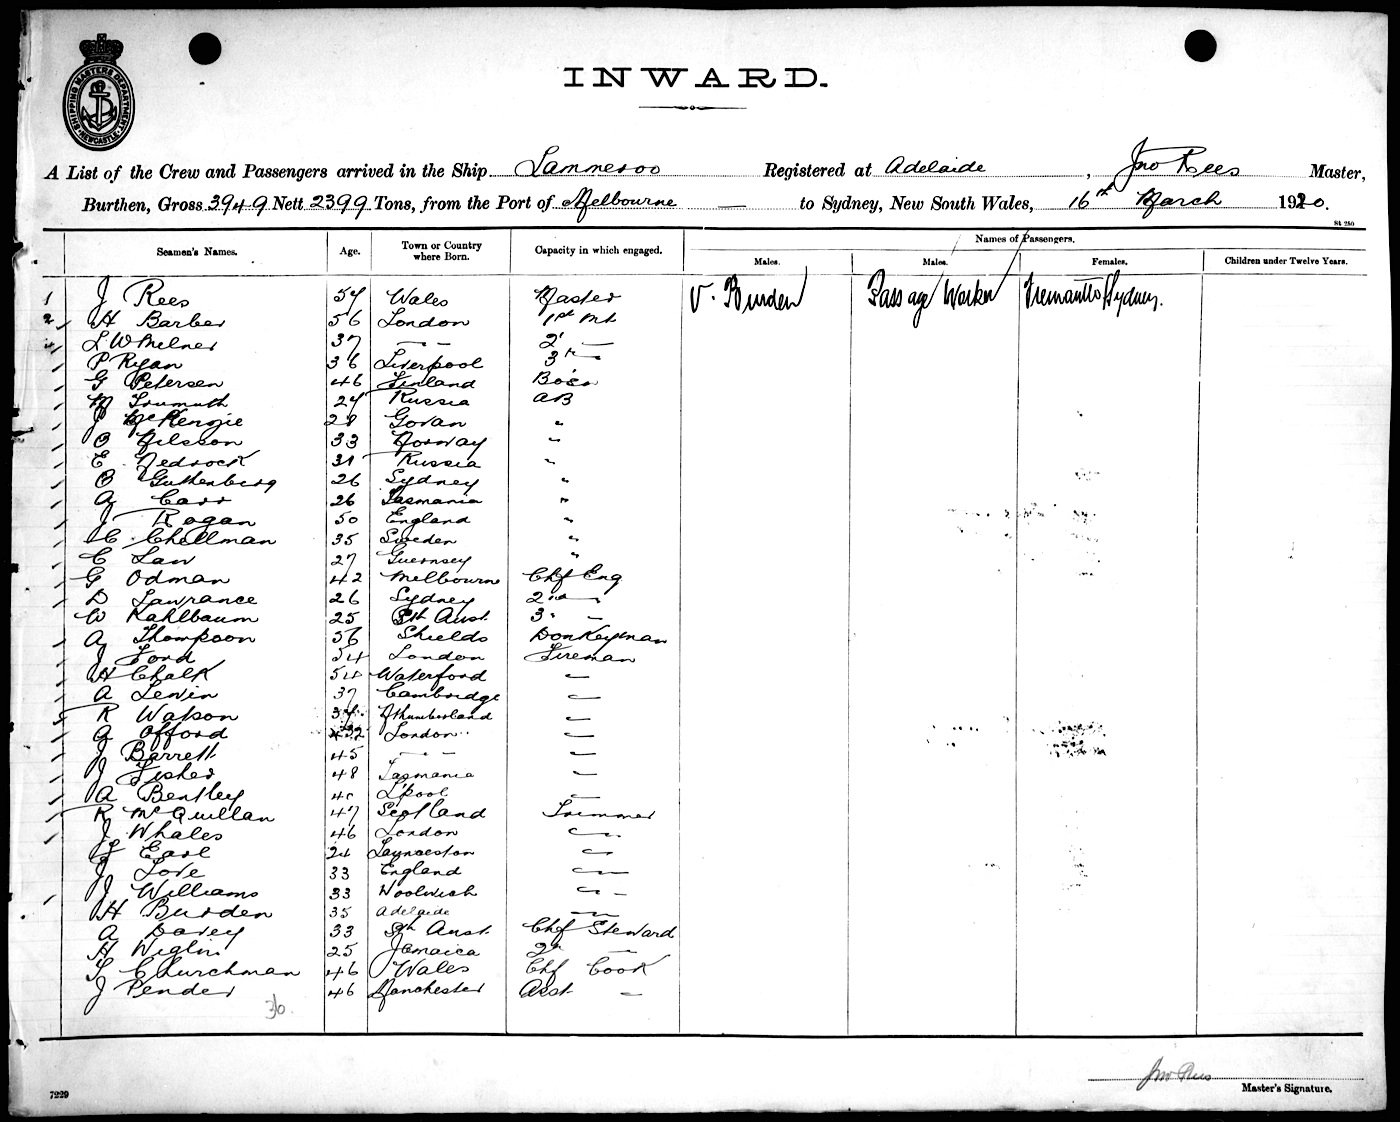 SHIPPING MASTERS DEPARTMENT
NEWCASTLE
INWARD.
A List of the Crew and Passengers arrived in the Ship Lammeroo Registered at Adelaide, Jno Rees Master,
Burthen, Gross 3949 Nett 2399 Tons, from the Port of Melbourne — to Sydney, New South Wales, 16th March 1920.
St 280
Seamen's Names. Age. Town or Country where Born. Capacity in which engaged. Names of Passengers.
Males. Males. Females. Children under Twelve Years.
1 J Rees 54 Wales Master V. Burden Passage Worker Fremantle/Sydney.
2 H Barber 56 London 1st Mt
L W Milner 37 — — 2 —
P Ryan 36 Liverpool 3rd —
G Petersen 46 Finland Bosn
M 24 Russia AB
J McKenzie 28 Govan "
O Nilsson 33 Norway "
E Nedrock 31 Russia "
O Guthenberg 26 Sydney "
A Carr 26 Tasmania "
J Rogan 50 England "
C Chellman 35 Sweden "
C Law 27 Guernsey "
G Odman 42 Melbourne Chf Eng
D Lawrance 26 Sydney 2nd —
W Kahlbaum 25 Sth Aust. 3 —
A Thompson 56 Shields Donkeyman
J Ford 54 London Fireman
H Chalk 54 Waterford —
A Lewin 37 Cambridge —
R Watson 34 Nthumberland —
A Offord 32 London —
J Barrett 45 — — —
J Fisher 48 Tasmania —
A Bentley 40 L'pool —
R McQuillan 47 Scotland Trimmer
J Whales 46 London —
Earl 24 Launceston —
J Love 33 England —
J Williams 33 Woolwich —
H Burden 35 Adelaide —
A Davey 33 Sth Aust. Chf Steward
H Wiglin 25 Jamaica 2nd —
T Churchman 46 Wales Chf Cook
J Pender 46 Manchester Asst —
36.
Jno Rees
Master's Signature.
7229